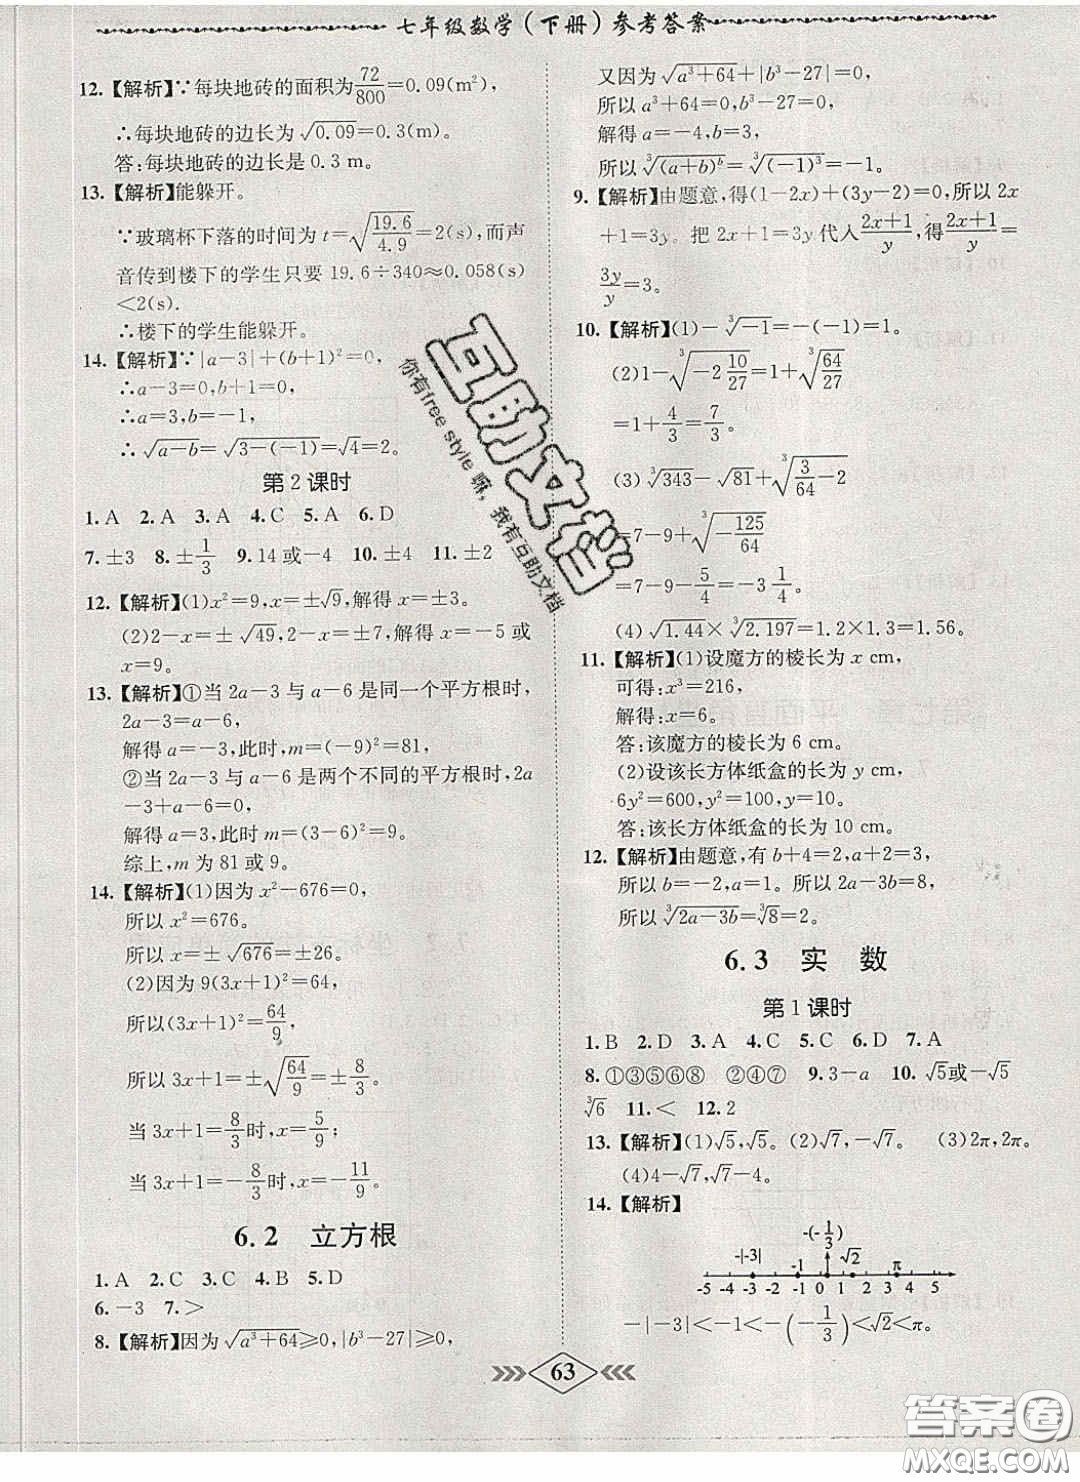 七年级数学(下册)参考答案
12.【解析】∵每块地砖的面积为72/800=0.09(m²),
∴每块地砖的边长为√0.09=0.3(m)。
答:每块地砖的边长是 0.3 m。
13.【解析】能躲开。
∵玻璃杯下落的时间为 t=√(19.6/4.9)=2(s),而声
音传到楼下的学生只要 19.6÷340≈0.058(s)
<2(s).
∴楼下的学生能躲开。
14.【解析】∵|a-3|+(b+1)²=0,
∴a-3=0,b+1=0,
∴a=3,b=-1,
∴√(a-b)=√(3-(-1))=√4=2。
第 2 课时
1. A 2. A 3. A 4. C 5. A 6. D
7. ±3 8. ±1/3 9. 14 或-4 10. ±4 11. ±2
12.【解析】(1)x²=9,x=±√9,解得 x=±3。
(2)2-x=±√49,2-x=±7,解得 x=-5 或
x=9。
13.【解析】①当 2a-3 与 a-6 是同一个平方根时,
2a-3=a-6,
解得 a=-3,此时,m=(-9)²=81,
②当 2a-3 与 a-6 是两个不同的平方根时,2a
-3+a-6=0,
解得 a=3,此时 m=(3-6)²=9。
综上,m 为 81 或 9。
14.【解析】(1)因为 x²-676=0,
所以 x²=676。
所以 x=±√676=±26。
(2)因为 9(3x+1)²=64,
所以(3x+1)²=64/9,
所以 3x+1=±√(64/9)=±8/3,
当 3x+1=8/3时,x=5/9;
当 3x+1=-8/3时,x=-11/9。
6.2 立方根
1. A 2. C 3. C 4. B 5. D
6. -3 7. >
8.【解析】因为√(a³+64)≥0,|b³-27|≥0,
又因为√(a³+64)+|b³-27|=0,
所以 a³+64=0,b³-27=0,
解得 a=-4,b=3,
所以∛(a+b)ᵇ=∛(-1)³=-1。
9.【解析】由题意,得(1-2x)+(3y-2)=0,所以 2x
+1=3y。把 2x+1=3y 代入(2x+1)/y,得(2x+1)/y=
3y/y=3。
10.【解析】(1)-∛-1=-(-1)=1。
(2)1-∛(-2 10/27)=1+∛(64/27)
=1+4/3=7/3。
(3)∛343-√81+∛(3/64-2)
=7-9+∛(-125/64)
=7-9-5/4=-3 1/4。
(4)√1.44×∛2.197=1.2×1.3=1.56。
11.【解析】(1)设魔方的棱长为 x cm,
可得:x³=216,
解得:x=6。
答:该魔方的棱长为 6 cm。
(2)设该长方体纸盒的长为 y cm,
6y²=600,y²=100,y=10。
答:该长方体纸盒的长为 10 cm。
12.【解析】由题意,有 b+4=2,a+2=3,
所以 b=-2,a=1,所以 2a-3b=8,
所以∛(2a-3b)=∛8=2。
6.3 实 数
第 1 课时
1. B 2. D 3. A 4. C 5. C 6. D 7. A
8. ①③⑤⑥⑧ ②④⑦ 9. 3-a 10. √5或-√5
∛6 11. < 12. 2
13.【解析】(1)√5,√5。(2)√7,-√7。 (3)2π,2π。
(4)4-√7,√7-4。
14.【解析】
-(-1/3)
-|-3| -1 √2 π
-5 -4 -3 -2 -1 0 1 2 3 4 5
-|-3|<-1<-(-1/3)<√2<π。
63
互助文档
你有free style 嘛,我有互助文档
答案圈
MXQE.COM